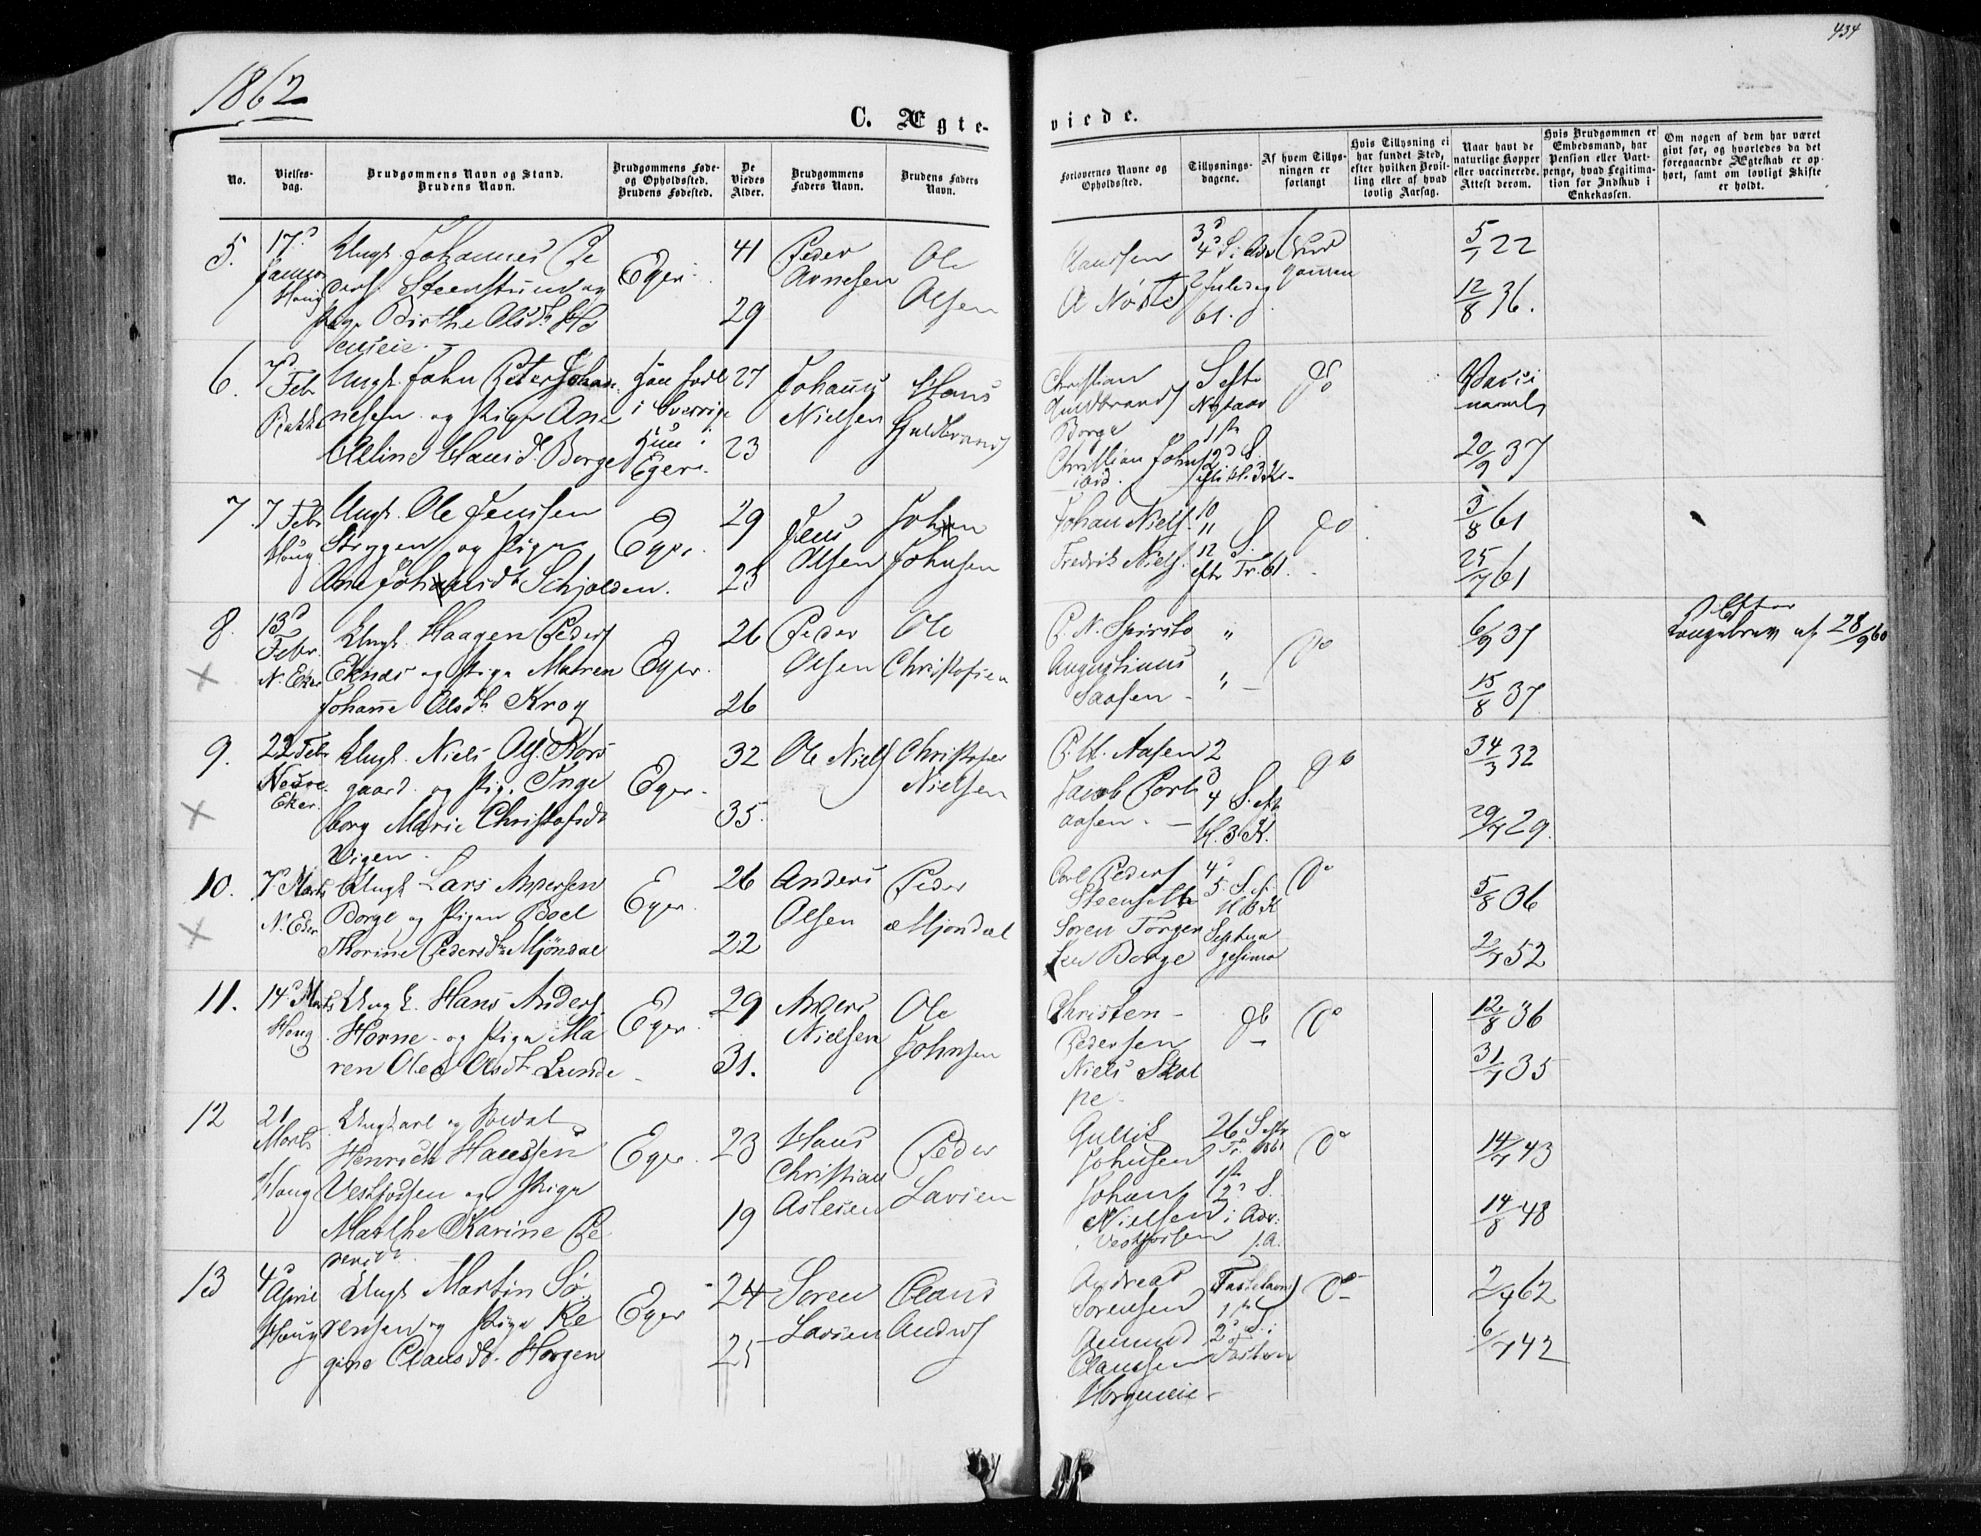 434
1862
C. Ægte-
viede.
No.
Vielses-
dag.
Brudgommens Navn og Stand.
Brudens Navn.
Brudgommens Føde-
og Opholdssted.
Brudens Fødested.
De
Viedes
Alder.
Brudgommens
Faders Navn.
Brudens Faders
Navn.
Forlovernes Navne og
Opholdssted.
Tillysnings-
dagene.
Af hvem Tillys-
ningen er
forlangt
Hvis Tillysning ei
har fundet Sted,
efter hvilken Bevil-
ling eller af hvad
lovlig Aarsag.
Naar havt de
naturlige Kopper
eller vaccinerede.
Attest derom.
Hvis Brudgommen er
Embedsmand, har
Pension eller Vart-
penge, hvad Legitima-
tion for Indskud i
Enkekassen.
Om nogen af dem har været
gift før, og hvorledes da det
foregaaende Ægteskab er op-
hørt, samt om lovligt Skifte
er holdt.
5.
17d
Haug
Ungk. Johannes Pe
og
Pige Birthe Olsdtr Ho
eneie.
Eger
41
29
Peder
Arnesen
Ole
Olsen
2 Juledag
61.
5/1 22
12/8 36.
6.
7d
Febr
Ungk. John Peter Johan
nesen og Pige Ane
Elline Hansd. Borge
Han født
i Sverrige
Hun i
Eger.
27
23
Johans
Nielsen
Hans
Guldbrands
Christian
Guldbrands
Borge
Christian Johns
S efter
Nytaar
1ste
2d S.
do
20/9 37
7
7 Febr
Haug
Ungk. Ole Jensen
Styggen og Pige
Ane Johansdtr Schjolden.
Eger.
29
23
Jens
Olsen
Johan
Johnsen
Johan Niels.
Fredrik Niels.
10
11
12 S.
eftr Tr. 61.
do
3/8 61
25/7 61
8.
13d
Febr.
N. Eker
Ungk. Haagen Peders
Eknes og Pige Maren
Johanne Olsdtr Krog
Eger.
26
26
Peder
Olsen
Ole
Christofsen
P. N. Spirito
Augustinus
Saasen -
"
"
do
6/9 37
15/8 37
Efter
Kongebrev af 28/9 60
9.
22 Febr
Nedre
Eker.
Ungk. Niels Ols. Kors
gaard og Pig. Inge
borg Marie Christofsdtr
Vigen.
Eger.
32
35.
Ole Niels
Christofer
Nielsen
P. H. Aasen
Jacob Port
aasen.
2
3
4 S. eft
H. 3 K.
do
34/3 32
29/7 29.
10.
7d Marts
N. Eker
Ungk Lars Andersen
Borge og Pigen Boel
Thorine Pedersdtr Mjøndal
Eger.
26
22
Anders
Olsen
Peder
Mjøndal
Carl Peders
Steensett
Søren Torger
sen Borge
4d
5. S. e.
H. 3 K
Septua
gesima
do
5/8 36
2/7 52
11.
14d Marts
Haug
Ungk. Hans Anders
Horne og Pige Ma
ren Olea Olsdtr Lunde
Eger
29
31.
Anders
Nielsen
Ole
Johnsen
Christen
Pedersen
Niels Skal
pe
do
do
12/8 36
31/7 35
12
21
Marts
Haug
Ungkarl og
Henrich Hanssen
Vestfossen og Pige
Marthe Karine Pe
dersdtr
Eger
23
19
Hans
Christian
Aslesen
Peder
Larsen
Gullik
Johnsen
Johan
Nielsen
Vestfossen
26 S eftr
Tr. 1861
1ste
2d S.
i Adv.
f.A.
do
14/7 43
14/8 48
13
4d
April
Haug
Ungk Martin Sø
rensen og Pige Re
gine Clausdtr. Horgen
Eger
24
25
Søren
Larsen
Claus
Anders
Andreas
Sørensen
Amund
Claussen
Horgeneie
Fastelavns
1ste
2d S. i
Fasten
do
2/4 62
6/7 42